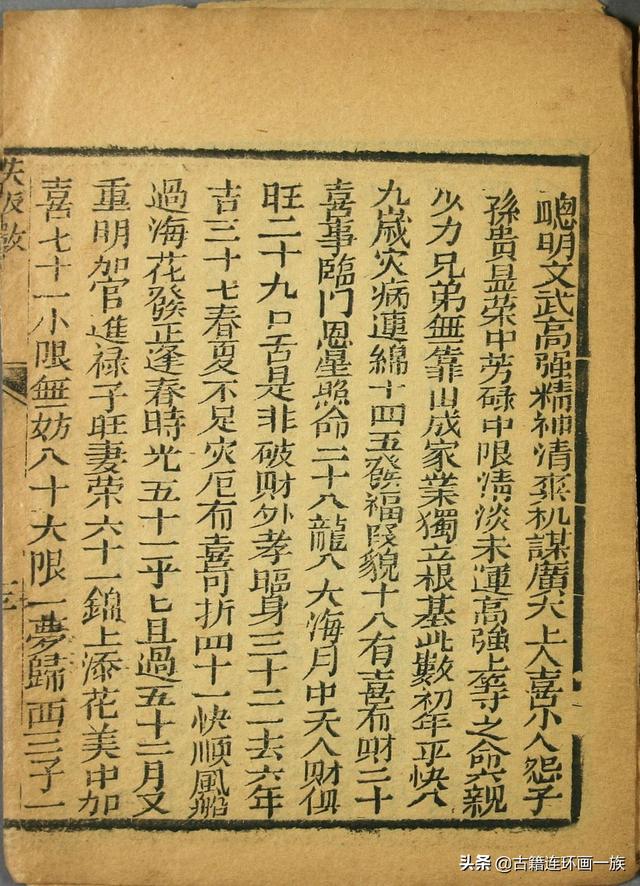 聰明文武高强精神清爽机謀廣大上人喜小人怨子
孫貴显荣中劳碌中限淸淡未運高強上等之命六親
少力兄弟無靠由成家業獨立根基此數初年平快八
九歲灾病連綿十四五發福叚貌十八有喜有財二十
喜事臨門恩星照命二十八龍入大海月中天人財俱
旺二十九口舌是非破財外孝臨身三十二一去六年
吉三十七春夏不足灾厄有喜可折四十一快順風船
過海花發正逢春時光五十一平七且過五十二月又
重明加官進禄子旺妻荣六十一錦上添花美中加
喜七十一小限無妨八十大限一夢歸西三子一
頭条 @古籍连环画一族